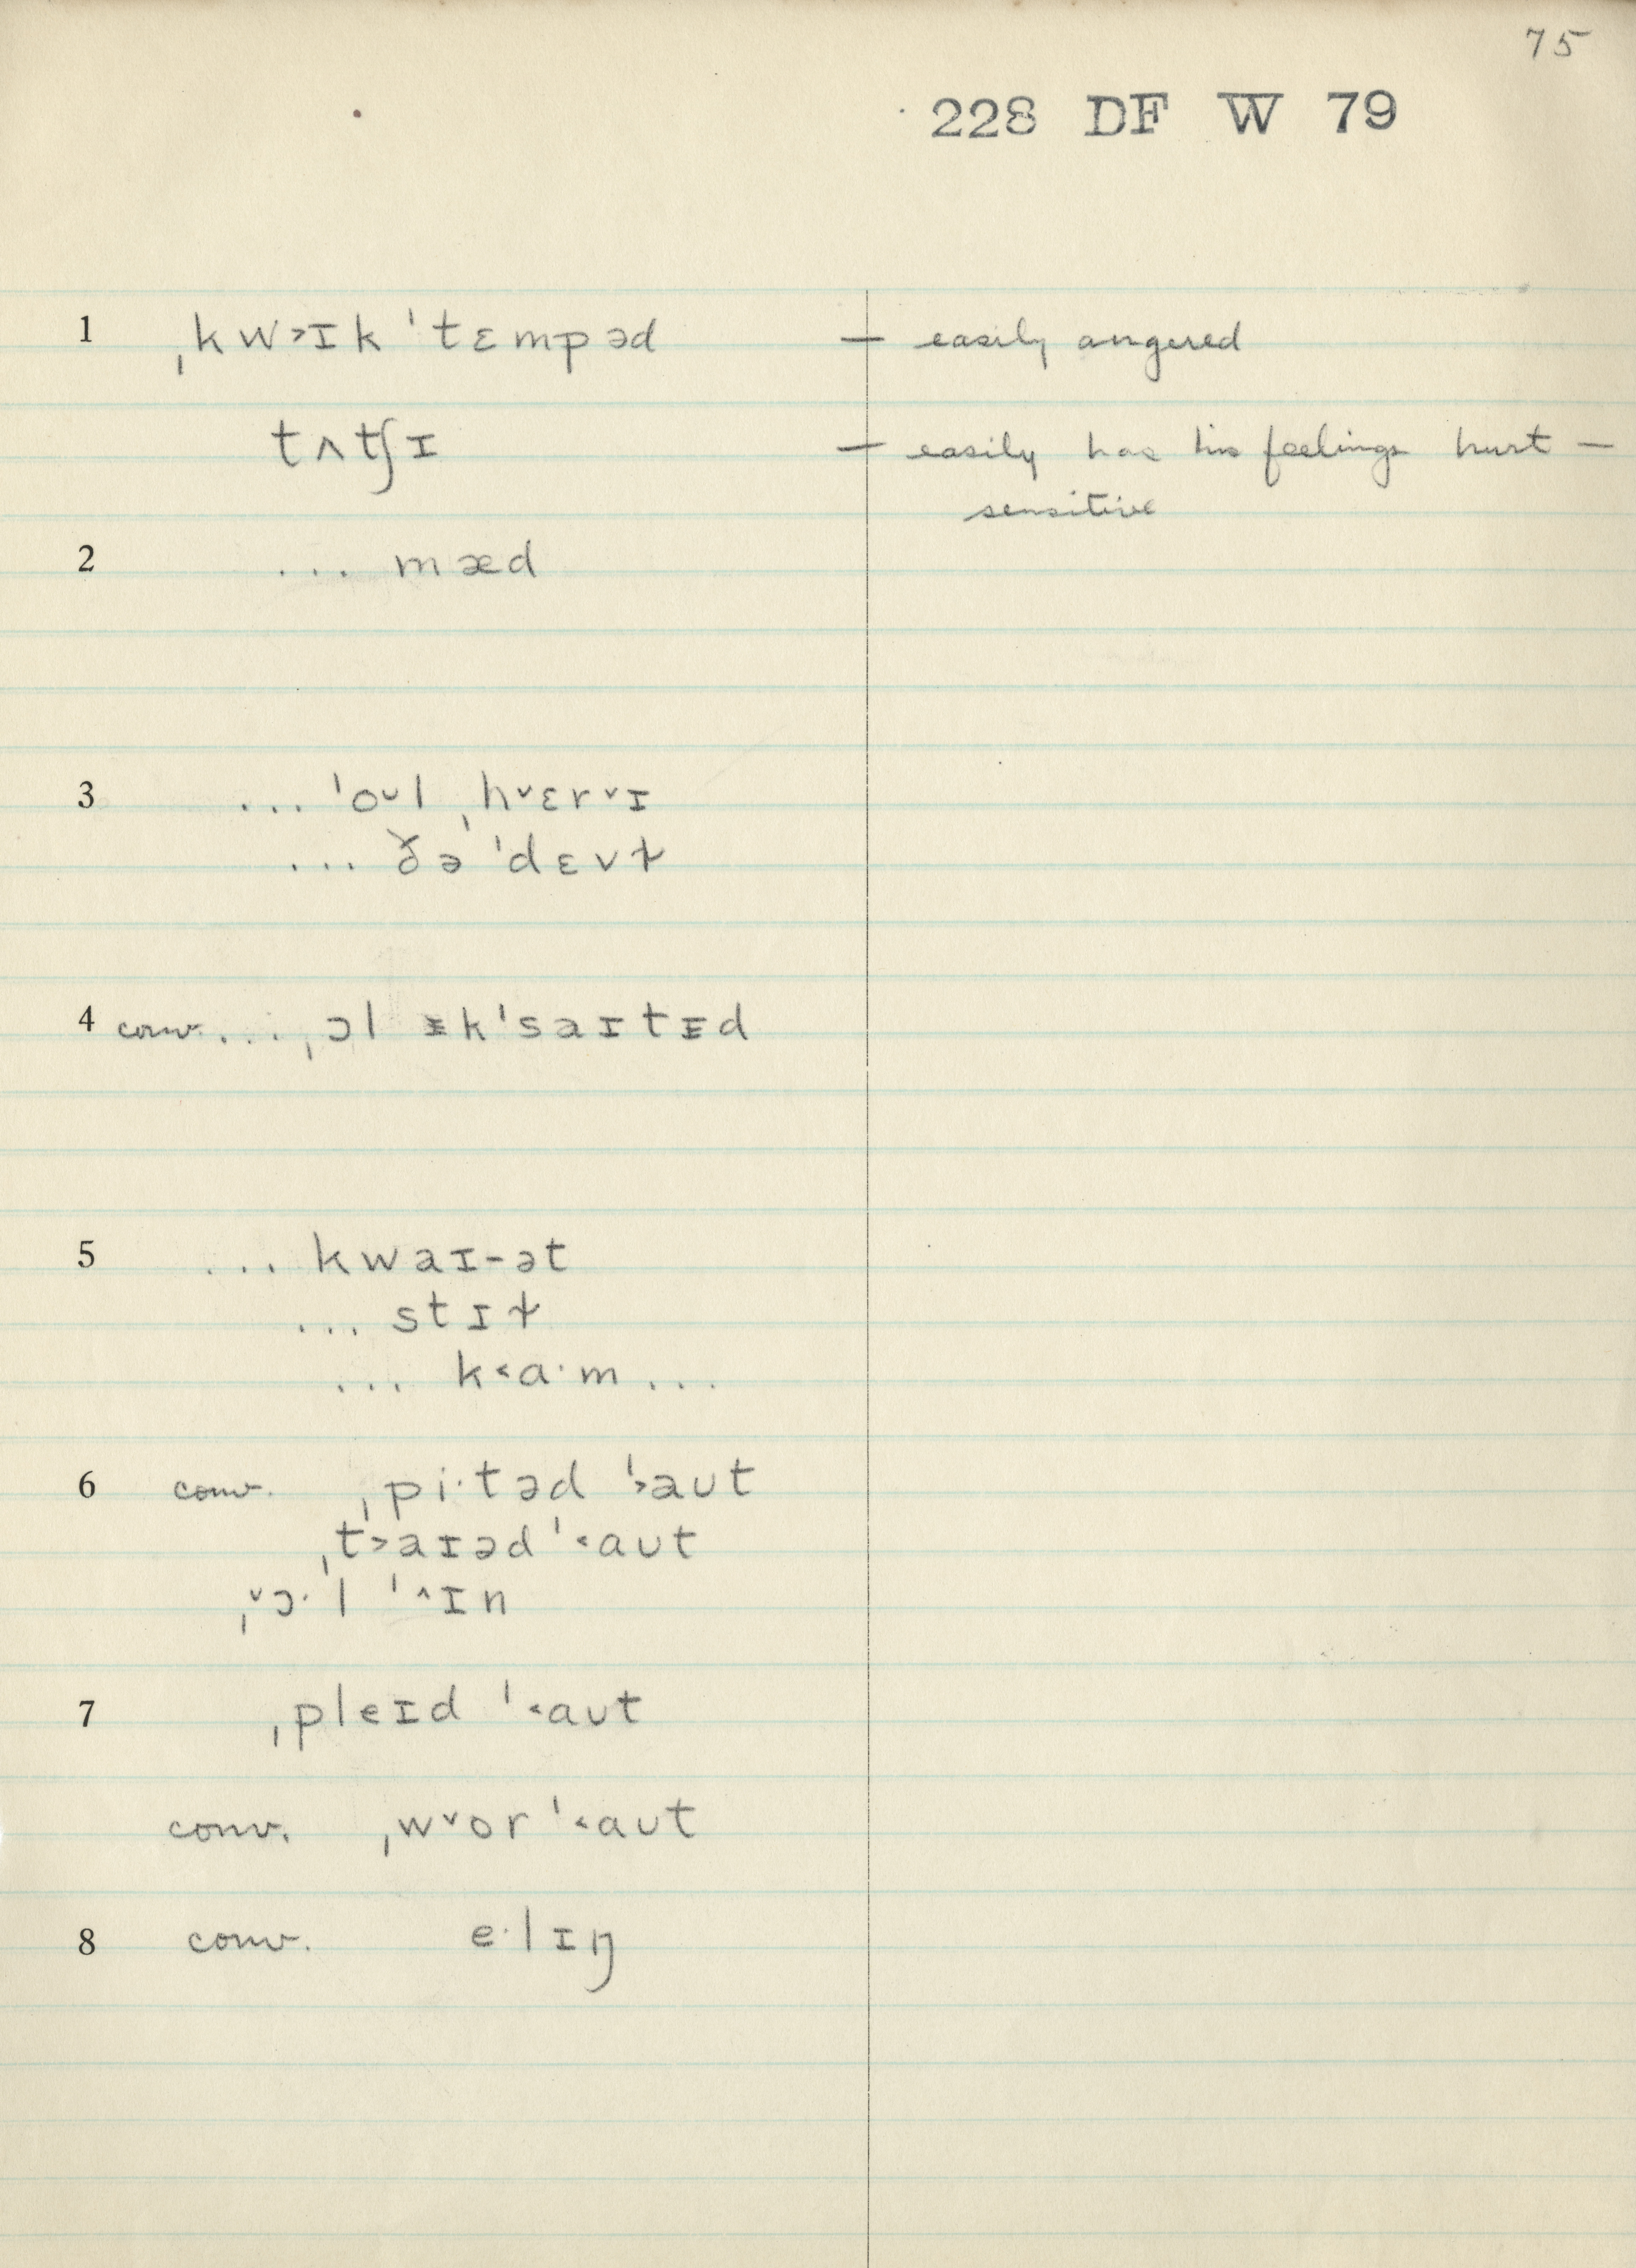 75
228 DF W 79
1 ˌkw˃ɪk ˈtɛmpəd — easily angered
tʌtʃɪ — easily has his feelings hurt —
sensitive
2 ... mæd
3 ... ˈo˅l ˌh˅ɛr˅ɪ
... ðə ˈdɛvɫ
4 conv. ... ˌɔl ᵻkˈsaɪtᵻd
5 ... kwaɪ-ət
... stɪɫ
... k˂a·m ...
6 conv. ˌpi·təd ˈ˃aʊt
ˌt˃aɪəd ˈ˂aʊt
ˌ˅ɔ·l ˈ˄ɪn
7 ˌpleɪd ˈ˂aʊt
conv. ˌw˅or ˈ˂aʊt
8 conv. e·lɪŋ